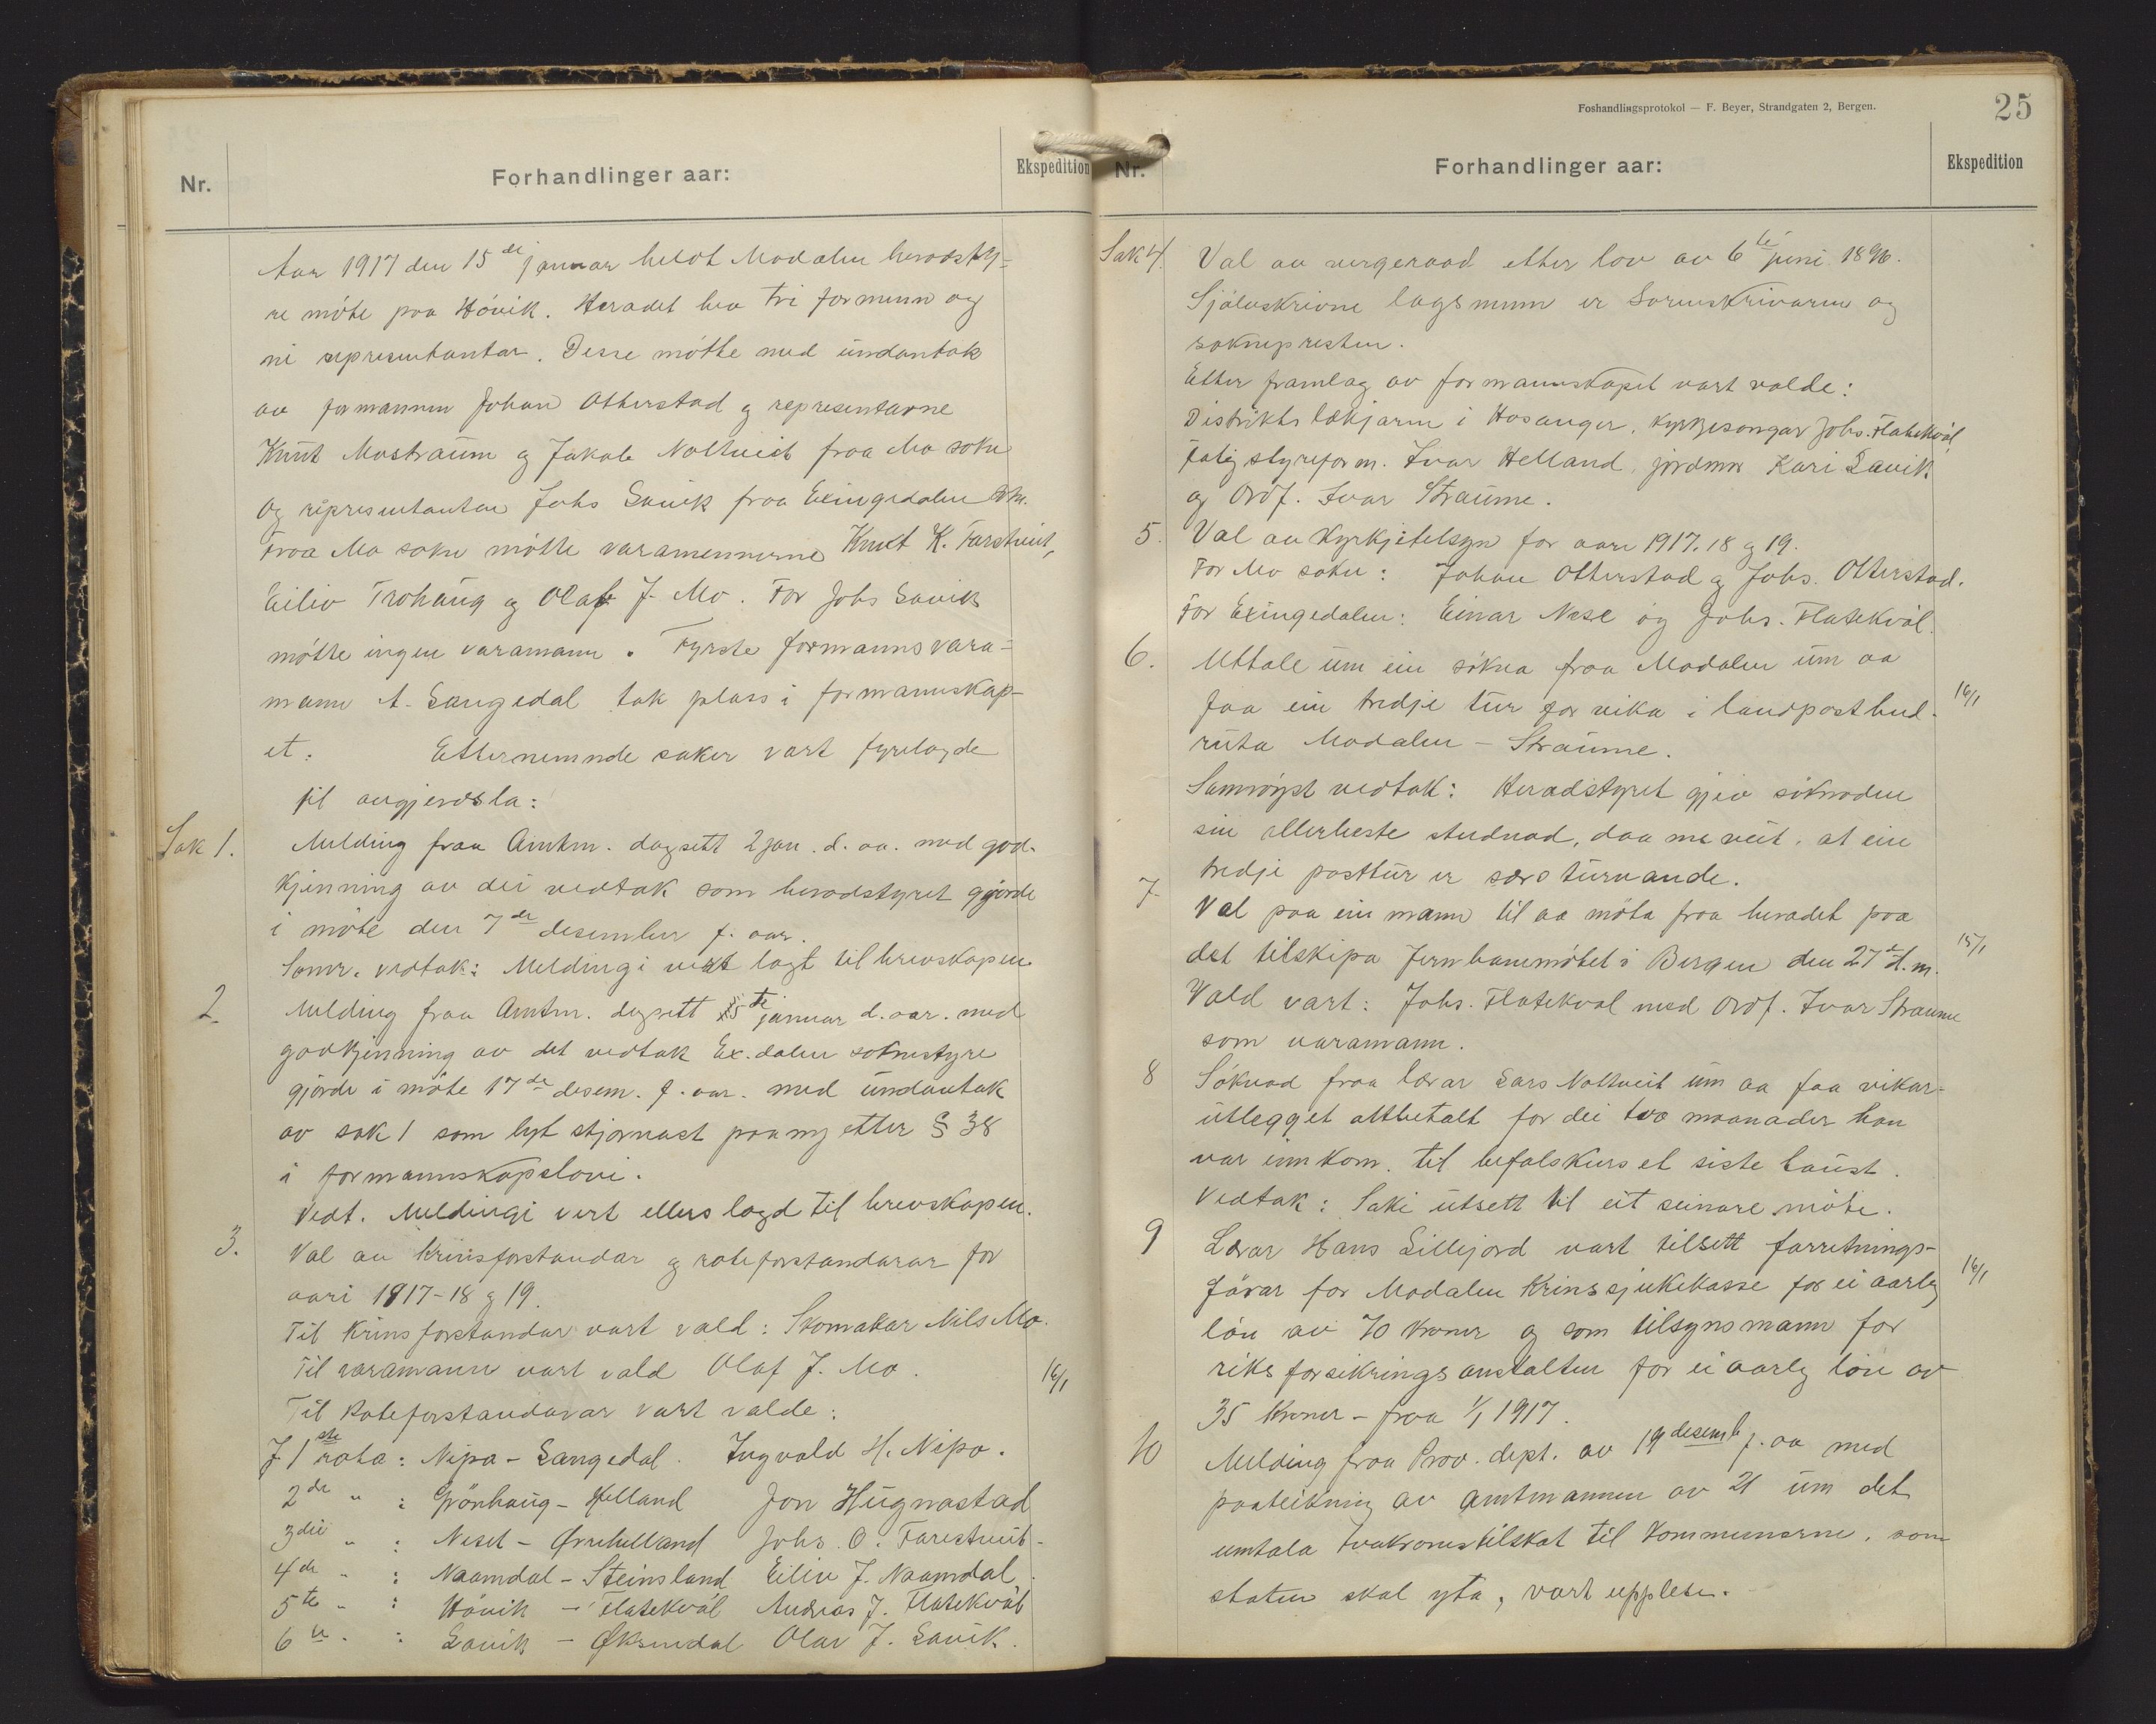 Nr.
Forhandlinger aar:
Ekspedition
Aar 1917 den 15de januar heldt Modalen heradsty-
re möte paa Hövik. Heradet hev tri formenn og
ni representantar. Desse mötte med undantak
av formannen Johan Otterstad og representarne
Knut Mostraum og Jakob Noltveit fraa Mo sokn
og representanten Johs Lavik fraa Exingedalen sokn.
Fraa Mo sokn mötte varamennerne Knut K. Farstveit,
Eiliv Trohaug og Olaf J. Mo. For Johs Lavik
mötte ingen varamann. Fyrste formannsvara-
mann A. Langedal tok plass i formannskap-
et. Etternemnde saker vart fyrelagde
til avgjerdsla:
Sak 1. Melding fraa Amtm. dagsett 2 jan. d. aa. med god-
kjenning av dei vedtak som heradstyret gjorde
i möte den 7de desember f. aar.
Samr. vedtak: Meldingi vert lagt til brevskapen.
2 Melding fraa Amtm. dagsett 5te januar d. aar. med
godkjenning av det vedtak Ex.dalen soknestyre
gjorde i möte 17de desem. f. aar. med undantak
av sak 1 som lyt stjornast paa ny etter § 38
i formannskapslovi.
Vedt. Meldingi vert ellers lagd til brevskapen.
3. Val av krinsforstandar og roteforstandarar for
aari 1917-18 og 19.
Til Krinsforstandar vart vald: Skomakar Nils Mo.
Til varamann vart vald Olaf J. Mo.
16/1
Til Roteforstandarar vart valde:
J 1ste rota: Nipa - Langedal. Ingvald H. Nipa.
2de " : Grönhaug - Helland Jon Hugnastad
3die " : Neset - Ørnehelland Johs. O. Farestveit.
4de " : Naamdal - Steinsland Eiliv J. Naamdal.
5te " : Hövik - Flatekvål Andreas J. Flatekvål
6te " : Lavik - Øksendal Olav J. Lavik.
Foshandlingsprotokol — F. Beyer, Strandgaten 2, Bergen.
25
Nr.
Forhandlinger aar:
Ekspedition
Sak 4. Val av vergeraad etter lov av 6te juni 1896.
Sjölvskrivne lagsmenn er Sorenskrivaren og
soknepresten.
Etter framlag av formannskapet vart valde:
Distriktslækjaren i Hosanger, kyrkjesongar Johs. Flatekvål,
Fatigstyreform. Ivar Helland, jordmor Kari Lavik
og Ordf. Ivar Straume.
5. Val av Kyrkjetilsyn for aari 1917. 18 og 19.
For Mo sokn: Johan Otterstad og Johs. Otterstad.
For Exingedalen: Einar Nese og Johs. Flatekvål.
6. Uttale um ein sökna fraa Modalen um aa
faa ein tredje tur for vika i landpostbud-
16/1
ruta Modalen - Straume.
Samröyst vedtak: Heradstyret gjev söknaden
sin allerbeste studnad, daa me veit, at ein
tredje posttur er særs turvande.
7. Val paa ein mann til aa möta fraa heradet paa
det tilskipa Jernbanemötet i Bergen den 27de d. m.
15/1
Vald vart: Johs. Flatekvål med Ordf. Ivar Straume
som varamann.
8 Söknad fraa lærar Lars Noltveit um aa faa vikar-
utlegget attbetalt for dei tvo maanader han
var innkom. til befalskurset siste haust.
Vedtak: Saki utsett til eit seinare möte.
9 Lærar Hans Lillejord vart tilsett forretnings-
förar for Modalen Krinssjukekasse for ei aarleg
16/1
lön av 70 kroner og som tilsynsmann for
riksforsikringsanstalten for ei aarleg lön av
35 kroner - fraa 1/1 1917.
10 Melding fraa Prov. dept. av 19 desemb f. aa med
paateikning av amtmannen av 21 um det
umtala tvokronestilskot til kommunerne, som
staten skal yta, vart upplese.